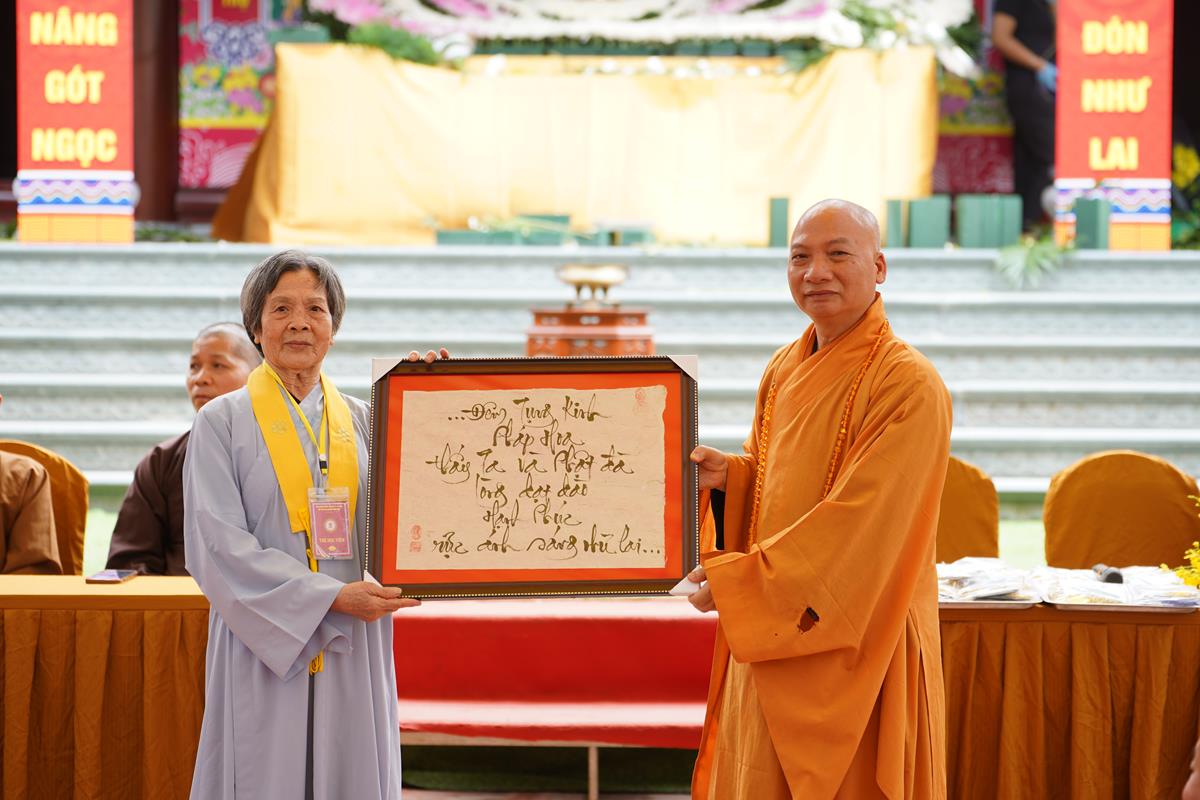 NÂNG
GÓT
NGỌC
ĐÓN
NHƯ
LAI
...Đêm Tụng Kinh
Pháp Hoa
thấy Ta và Phật đà
lòng dạt dào
Hạnh Phúc
rực ánh sáng như lai...